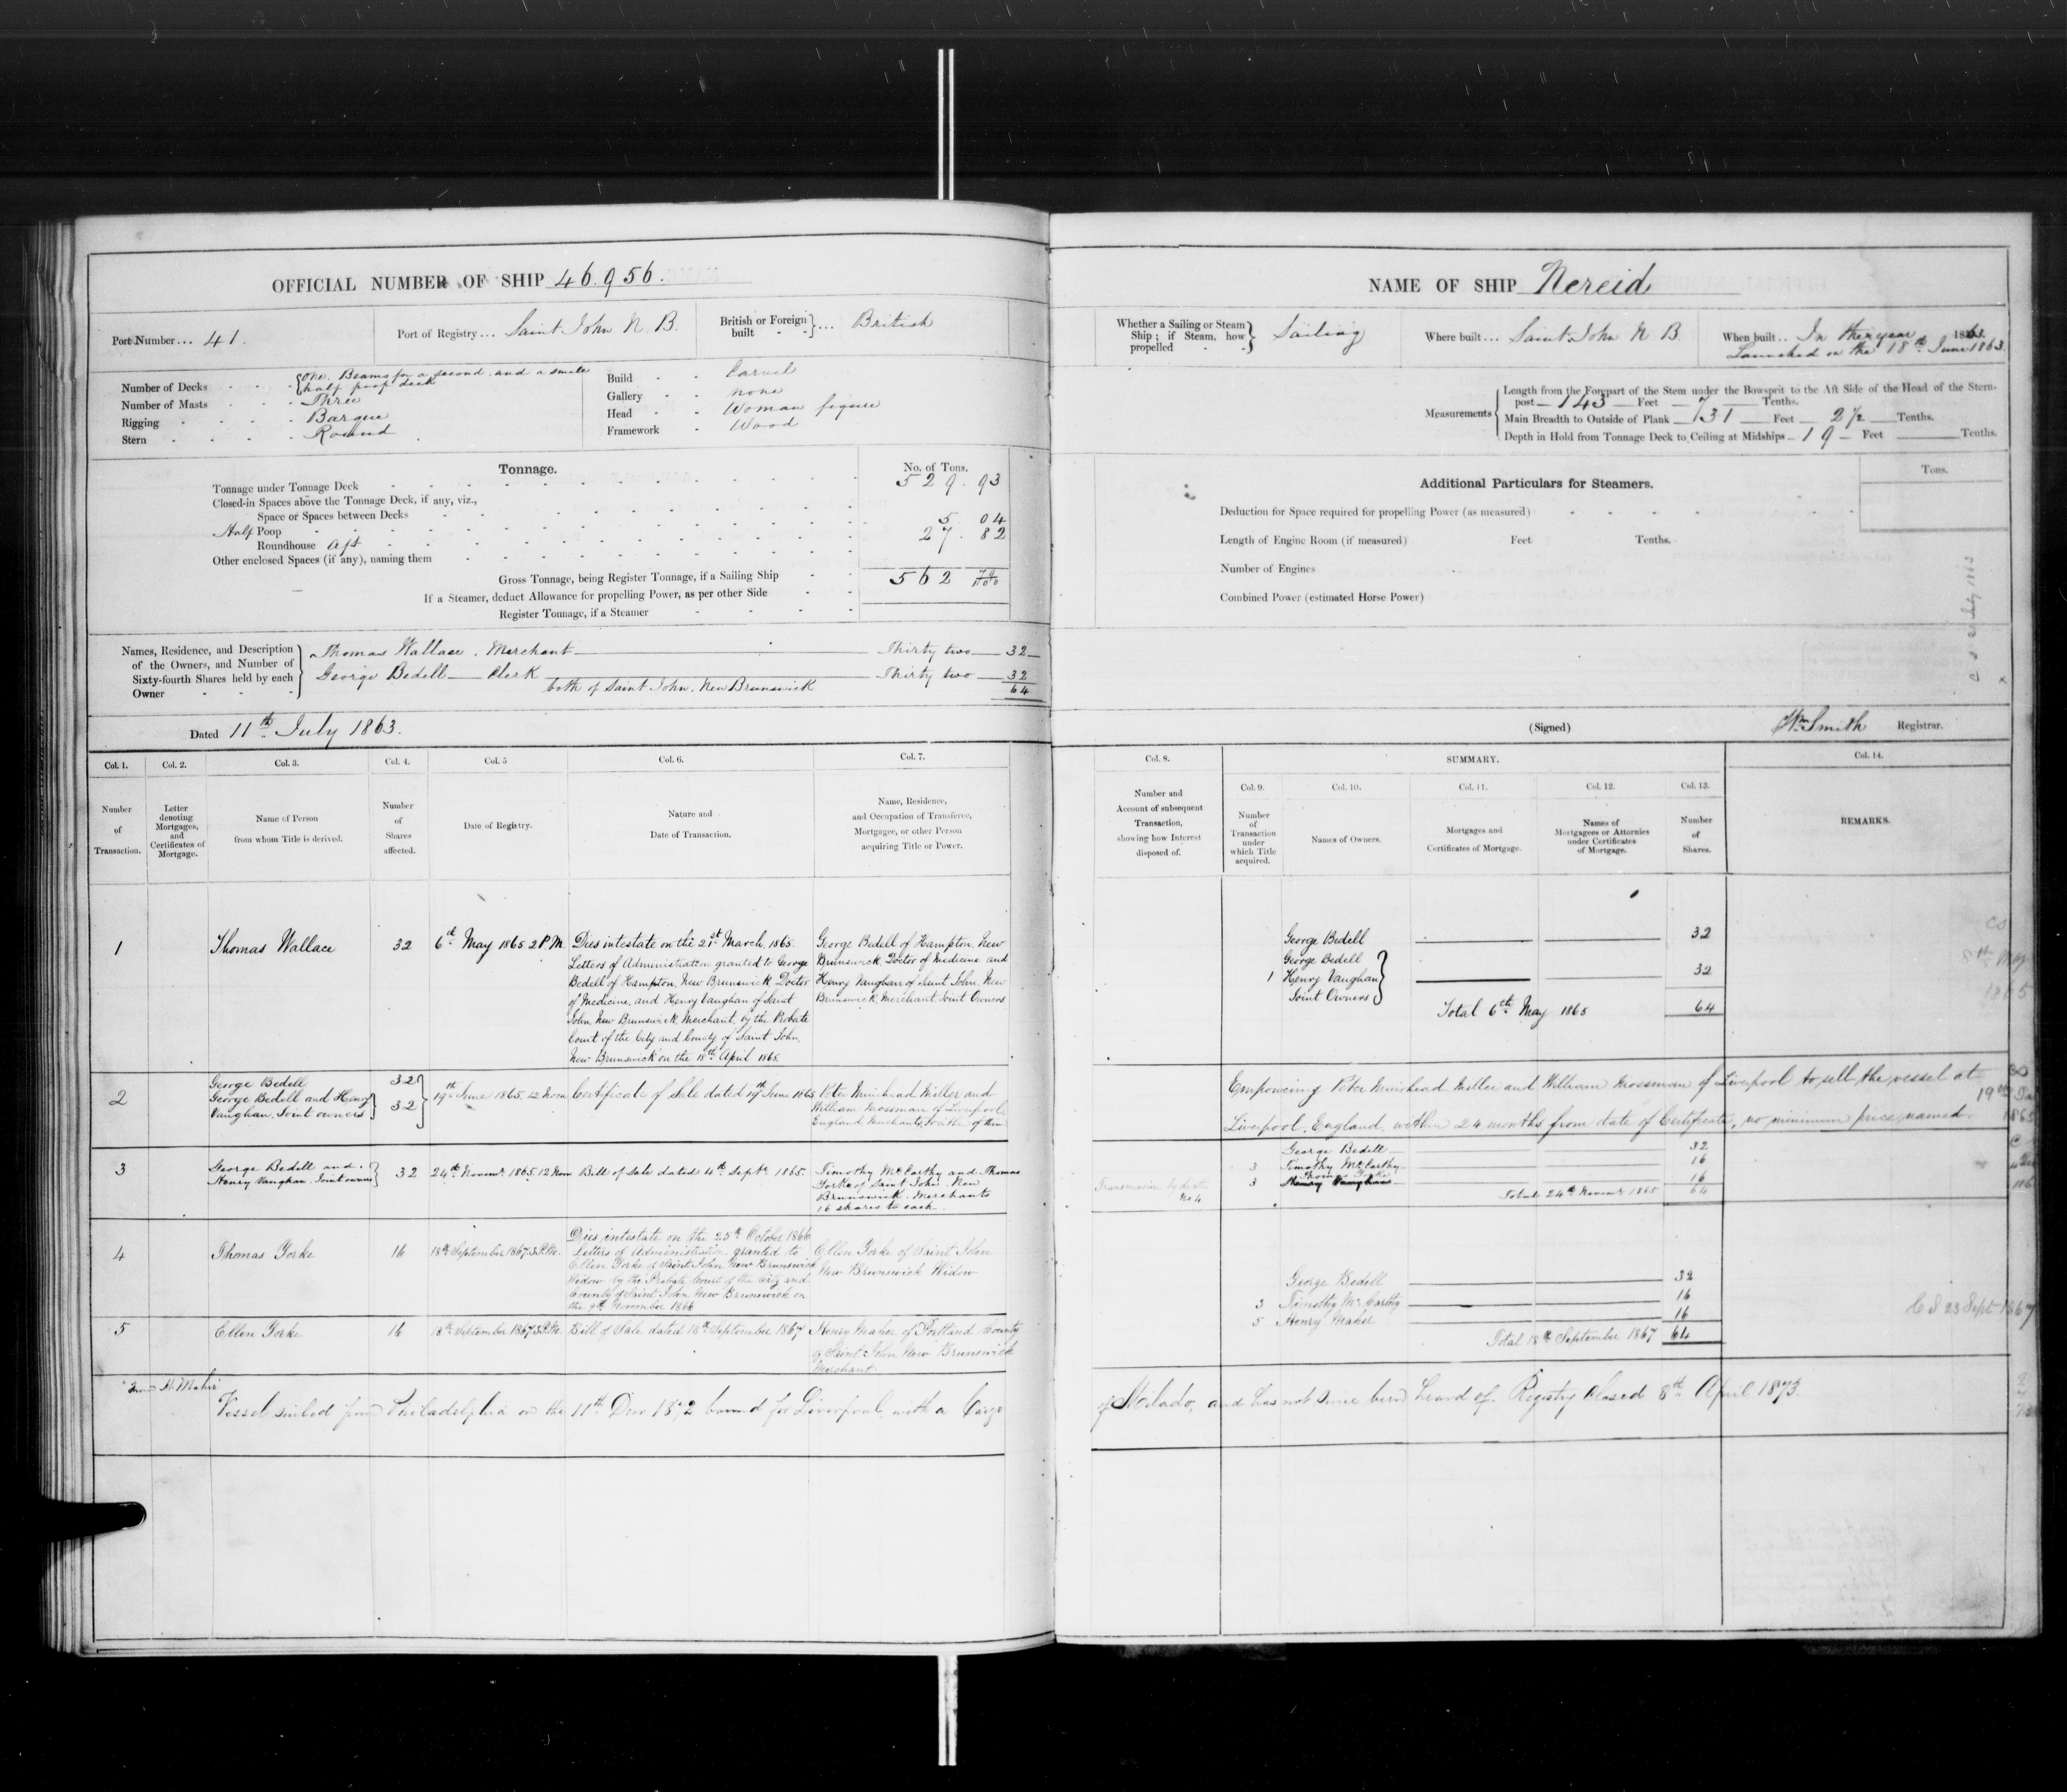 OFFICIAL NUMBER OF SHIP 46.956.
Port Number ... 41.
Port of Registry ... Saint John N. B.
British or Foreign built } ... British
Number of Decks { One. Beams for a second and a small
half poop deck
Number of Masts Three
Rigging Barque
Stern Round
Build Carvel
Gallery None
Head Woman figure
Framework Wood
Tonnage.
No. of Tons.
Tonnage under Tonnage Deck 529. 93
Closed-in Spaces above the Tonnage Deck, if any, viz.,
Space or Spaces between Decks
Half Poop 5 04
Roundhouse aft 27. 82
Other enclosed Spaces (if any), naming them
Gross Tonnage, being Register Tonnage, if a Sailing Ship 562 79/100
If a Steamer, deduct Allowance for propelling Power, as per other Side
Register Tonnage, if a Steamer
Names, Residence, and Description
of the Owners, and Number of
Sixty-fourth Shares held by each
Owner
Thomas Wallace. Merchant Thirty two 32
George Bedell Clerk Thirty two 32
both of Saint John. New Brunswick 64
Dated 11th July 1863.
Col. 1.
Number
of
Transaction.
Col. 2.
Letter
denoting
Mortgages,
and
Certificates of
Mortgage.
Col. 3.
Name of Person
from whom Title is derived.
Col. 4.
Number
of
Shares
affected.
Col. 5
Date of Registry.
Col. 6.
Nature and
Date of Transaction.
Col. 7.
Name, Residence,
and Occupation of Transferee,
Mortgagee, or other Person
acquiring Title or Power.
1
Thomas Wallace
32
6th May 1865. 2 P.M.
Dies intestate on the 21st March, 1865.
Letters of Administration granted to George
Bedell of Hampton, New Brunswick, Doctor
of Medicine, and Henry Vaughan of Saint
John, New Brunswick, Merchant, by the Probate
Court of the City and County of Saint John,
New Brunswick on the 18th April 1865.
George Bedell of Hampton, New
Brunswick, Doctor of Medicine and
Henry Vaughan of Saint John, New
Brunswick, Merchant Joint Owners
2
George Bedell
George Bedell and Henry
Vaughan. Joint owners
32
32
19th June 1865. 12 Noon
Certificate of Sale dated 19th June 1865
Peter Muirhead Miller and
William Mossman of Liverpool,
England, Merchants, or either of them
3
George Bedell and
Henry Vaughan. Joint owners
32
24th Novemr 1865. 12 Noon
Bill of Sale dated 4th Septr 1865.
Timothy McCarthy and Thomas
Yorke of Saint John. New
Brunswick. Merchants
16 shares to each.
4
Thomas Yorke
16
18th September 1867. 3 P.M.
Dies intestate on the 25th October 1866
Letters of Administration granted to
Ellen Yorke of Saint John New Brunswick
Widow by the Probate Court of the City and
County of Saint John New Brunswick on
the 9th November 1866
Ellen Yorke of Saint John
New Brunswick Widow
5
Ellen Yorke
16
18th September 1867 3 P.M.
Bill of Sale dated 18th September 1867
Henry Maher of Portland County
of Saint John New Brunswick
Merchant.
Vessel sailed from Philadelphia on the 11th Decr 1872 bound for Liverpool, with a Cargo
NAME OF SHIP Nereid
Whether a Sailing or Steam
Ship; if Steam, how
propelled
Sailing
Where built ... Saint John N B.
When built .. In the year 1863.
Launched on the 18th June 1863.
Measurements
Length from the Forepart of the Stem under the Bowsprit to the Aft Side of the Head of the Stern-
post 143 Feet 7 Tenths.
Main Breadth to Outside of Plank 31 Feet 2 1/2 Tenths.
Depth in Hold from Tonnage Deck to Ceiling at Midships 19 Feet Tenths.
Additional Particulars for Steamers.
Tons.
Deduction for Space required for propelling Power (as measured)
Length of Engine Room (if measured) Feet Tenths.
Number of Engines
Combined Power (estimated Horse Power)
(Signed) Wm Smith Registrar.
Col. 8.
Number and
Account of subsequent
Transaction,
showing how Interest
disposed of.
SUMMARY.
Col. 9.
Number
of
Transaction
under
which Title
acquired.
Col. 10.
Names of Owners.
Col. 11.
Mortgages and
Certificates of Mortgage.
Col. 12.
Names of
Mortgagees or Attornies
under Certificates
of Mortgage.
Col. 13.
Number
of
Shares.
Col. 14.
REMARKS.
George Bedell 32
George Bedell
1 Henry Vaughan 32
Joint Owners
Total 6th May 1865 64
CS
8th May
1865
Empowering Peter Muirhead Miller and William Mossman of Liverpool to sell the vessel at
Liverpool, England, within 24 months from date of Certificate, no minimum price named.
George Bedell 32
3 Timothy McCarthy 16
Thomas Yorke
3 Henry Vaughan 16
Transmission by death
No 4
Total 24th Novemr 1865 64
George Bedell 32
3 Timothy McCarthy 16
5 Henry Maher 16
Total 18th September 1867 64
CS 23 Sept 1867
of Molado, and has not since been heard of. Registry Closed 8th April 1873.